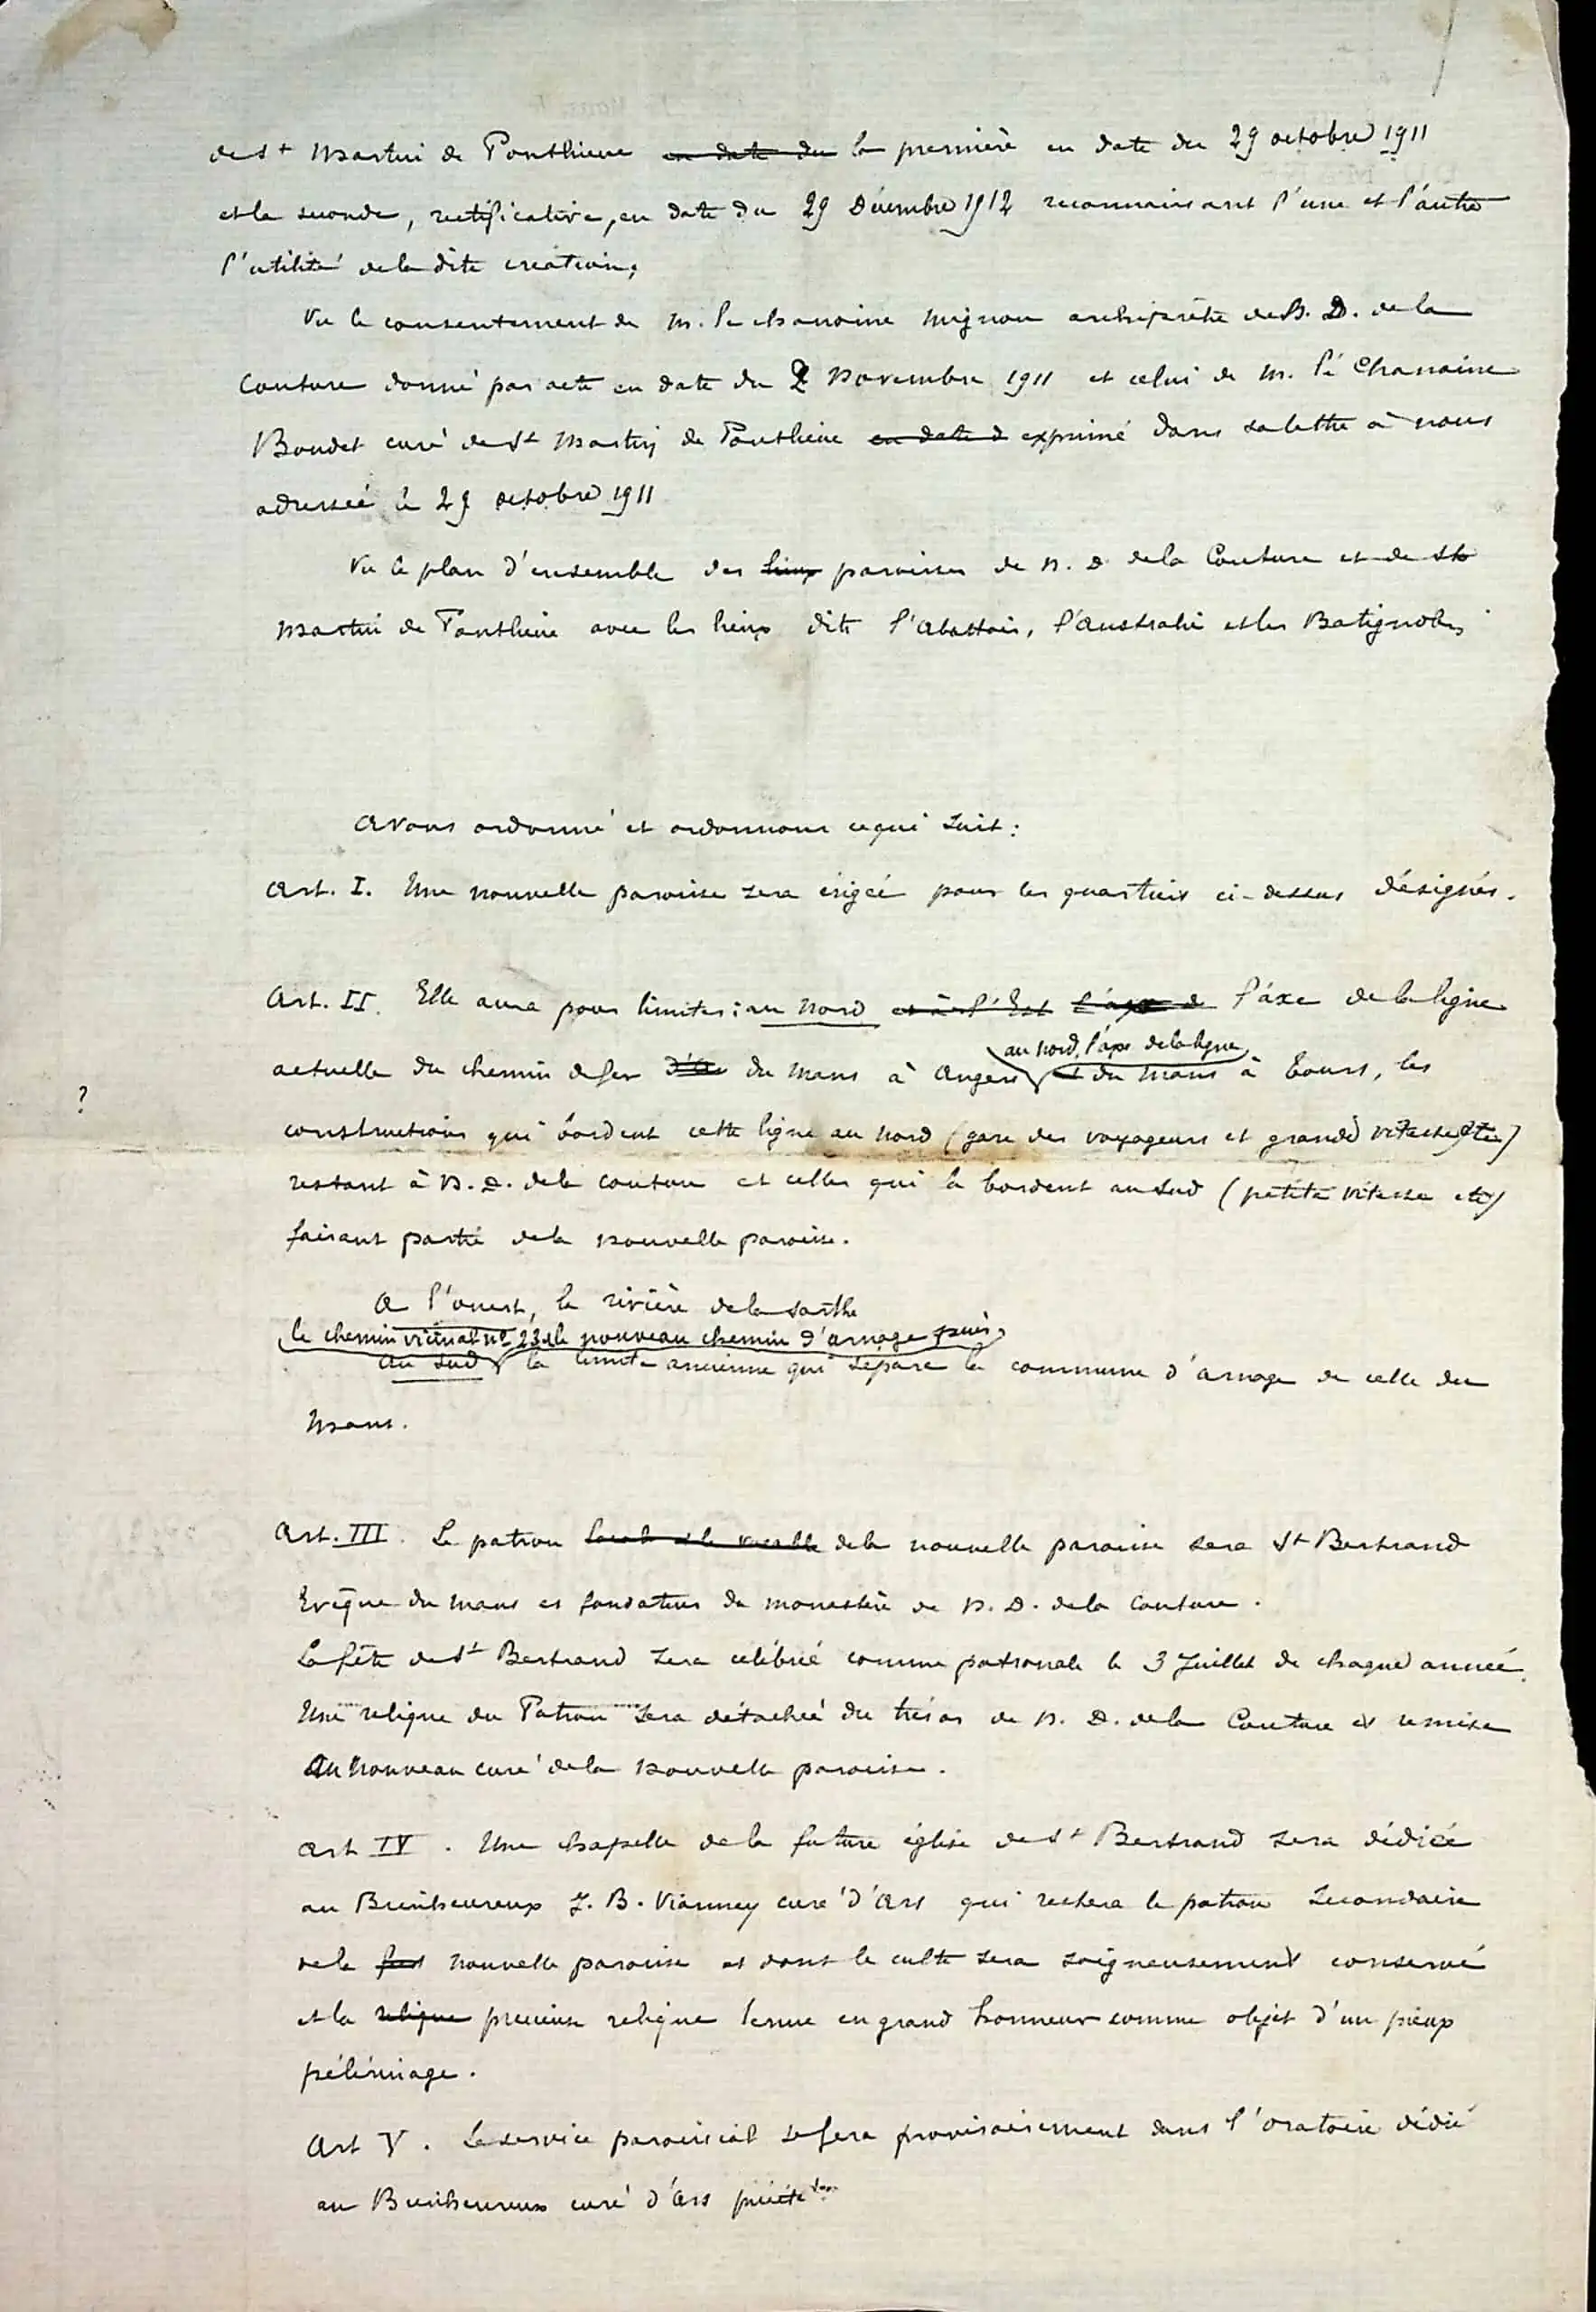 de St Martin de Pontlieue en date du la première en date du 29 octobre 1911
et la seconde, rectificative, en date du 29 Décembre 1912 reconnaissant l'une et l'autre
l'utilité de la dite création,
Vu le consentement de M. le chanoine Mignon archiprêtre de N. D. de la
Couture donné par acte en date du 2 Novembre 1911 et celui de M. le Chanoine
Boudet curé de St Martin de Pontlieue en date d exprimé dans sa lettre à nous
adressée le 29 octobre 1911
Vu le plan d'ensemble des lieux paroisses de N. D. de la Couture et de St
Martin de Pontlieue avec les lieux dits l'Abattoir, l'Australie et les Batignolles
Avons ordonné et ordonnons ce qui suit :
Art. I. Une nouvelle paroisse sera érigée pour les quartiers ci-dessus désignés.
Art. II. Elle aura pour limites : au Nord et à l'Est l'axe de l'axe de la ligne
au nord, l'axe de la ligne
actuelle du chemin de fer du Mans à Angers et du Mans à Tours, les
?
constructions qui bordent cette ligne au Nord (gare des voyageurs et grande vitesse, etc)
restant à N. D. de la Couture et celles qui la bordent au Sud (petite vitesse etc)
faisant partie de la nouvelle paroisse.
A l'ouest, la rivière de la Sarthe
le chemin vicinal no 23 dit le nouveau chemin d'Arnage puis,
Au Sud la limite ancienne qui sépare la commune d'Arnage de celle du
Mans.
Art. III. Le patron de la nouvelle paroisse sera St Bertrand
Evêque du Mans et fondateur du monastère de N. D. de la Couture.
La fête de St Bertrand sera célébrée comme patronale le 3 Juillet de chaque année.
Une relique du Patron sera détachée du trésor de N. D. de la Couture et remise
Au Nouveau curé de la nouvelle paroisse.
Art IV. Une chapelle de la future église de St Bertrand sera dédiée
au Bienheureux J. B. Vianney curé d'Ars qui restera le patron secondaire
de la nouvelle paroisse et dont le culte sera soigneusement conservé
et la relique précieuse relique tenue en grand honneur comme objet d'un pieux
pélérinage.
Art V. Le service paroissial se fera provisoirement dans l'oratoire dédié
au Bienheureux curé d'Ars